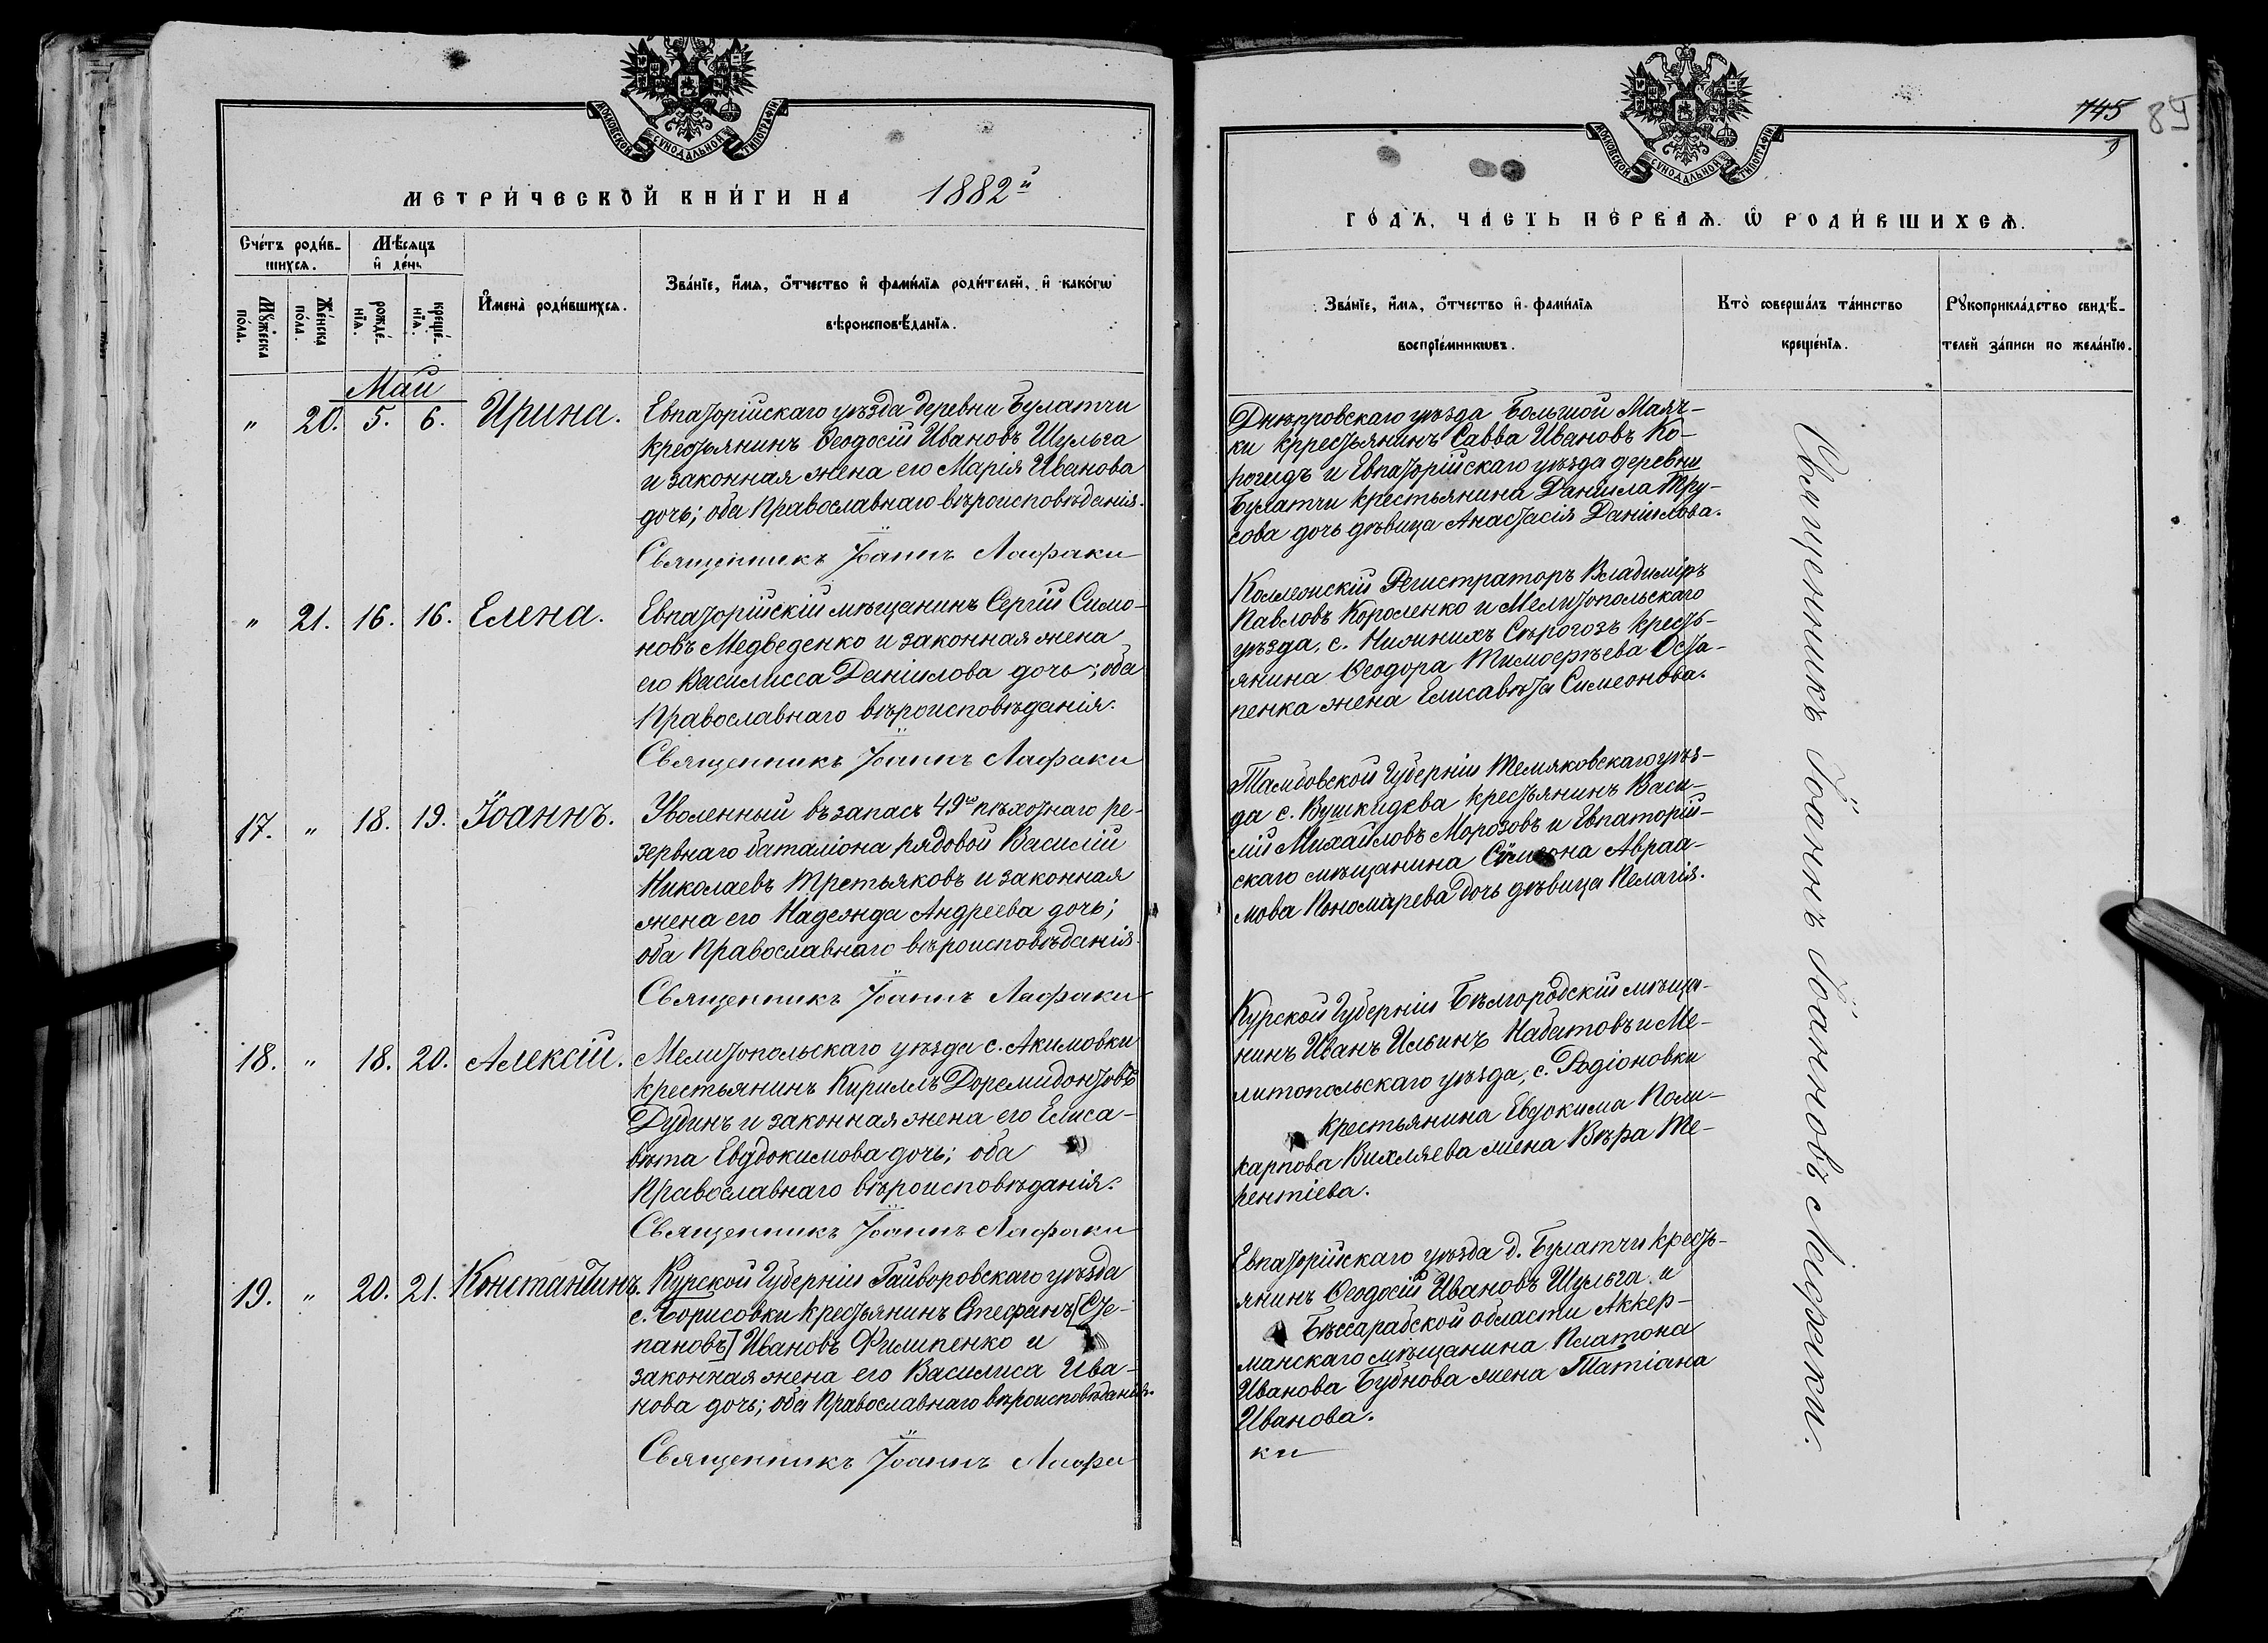 МОСКОВСКОЙ СѴНОДАЛЬНОЙ ТИПОГРАФІИ
МЕТРИ́ЧЕСКОЙ КНИ́ГИ НА 1882й
Сче́тъ роди́в-
шихсѧ.
Мѣ́сѧцъ
и҆ де́нь
Мꙋ́жеска
по́ла.
Же́нска
по́ла.
рожде́-
нїѧ.
креще́-
нїѧ.
И҆мена̀ роди́вшихсѧ.
Зва́нїе, и҆́мѧ, ѻ҆́тчество и҆ фами́лїѧ роди́телей, и҆ како́гѡ
вѣроисповѣ́данїѧ.
Май
" 20. 5. 6. Ирина.
Евпаторійскаго уѣзда деревни Булатчи
крестьянинъ Ѳеодосій Ивановъ Шульга
и законная жена его Марія Иванова
дочь; оба Православнаго вѣроисповѣданія.
Священникъ Іоаннъ Лафаки
" 21. 16. 16. Елена.
Евпаторійскій мѣщанинъ Сергій Симо-
новъ Медведенко и законная жена
его Василисса Даніилова дочь; оба
Православнаго вѣроисповѣданія.
Священникъ Іоаннъ Лафаки
17. " 18. 19. Іоаннъ.
Уволенный въ запасъ 49го пѣхотнаго ре-
зервнаго баталіона рядовой Василій
Николаевъ Третьяковъ и законная
жена его Надежда Андреева дочь;
оба Православнаго вѣроисповѣданія.
Священникъ Іоаннъ Лафаки
18. " 18. 20. Алексій.
Мелитопольскаго уѣзда с. Акимовки
крестьянинъ Кириллъ Доремидонтовъ
Дудинъ и законная жена его Елиса-
вѣта Евдокимова дочь; оба
Православнаго вѣроисповѣданія.
Священникъ Іоаннъ Лафаки
19. " 20. 21. Константинъ.
Курской Губерніи Гайворовскаго уѣзда
с. Борисовки крестьянинъ Стефанъ [Сте-
пановъ] Ивановъ Филипенко и
законная жена его Василиса Ива-
нова дочь; оба Православнаго вѣроисповѣданія.
Священникъ Іоаннъ Лафа-
745 89
МОСКОВСКОЙ СѴНОДАЛЬНОЙ ТИПОГРАФІИ
ГО́ДЪ, ЧА́СТЬ ПЕ́РВАѦ. Ѽ РОДИ́ВШИХСѦ.
Зва́нїе, и҆́мѧ, ѻ҆́тчество и҆ фами́лїѧ
воспрїе́мникѡвъ.
Кто̀ соверша́лъ та́инство
креще́нїѧ.
Рꙋкоприкла́дство свидѣ́-
телей за́писи по жела́нїю.
Днѣпровскаго уѣзда Большой Маяч-
ки крресьянинъ Савва Ивановъ Ко-
рогидъ и Евпаторійскаго уѣзда деревни
Булатчи крестьянина Даніила Тру-
сова дочь дѣвица Анастасія Даніилова.
Коллежскій Регистраторъ Владиміръ
Павловъ Короленко и Мелитопольскаго
уѣзда, с. Нижнихъ Сѣрогозъ кресть-
янина Ѳеодора Тимоѳѣева Оста-
пенка жена Елисавѣта Симеонова.
Тамбовской Губерніи Темяковскаго уѣз-
да с. Вушкидѣва крестьянинъ Васи-
лій Михайловъ Морозовъ и Евпаторій-
скаго мѣщанина Симеона Авраа-
мова Пономарева дочь дѣвица Пелагія.
Курской Губерніи Бѣлгородскій мѣща-
нинъ Иванъ Ильинъ Набатовъ и Ме-
литопольскаго уѣзда, с. Родіоновки
крестьянина Евдокима Поли-
карпова Вихляева жена Вѣра Те-
рентіева.
Евпаторійскаго уѣзда д. Булатчи кресть-
янинъ Ѳеодосій Ивановъ Шульга и
Бѣссарабской области Аккер-
манскаго мѣщанина Платона
Иванова Бубнова жена Татіана
Иванова.
ки
Священникъ Іоаннъ Іоанновъ Лафаки.